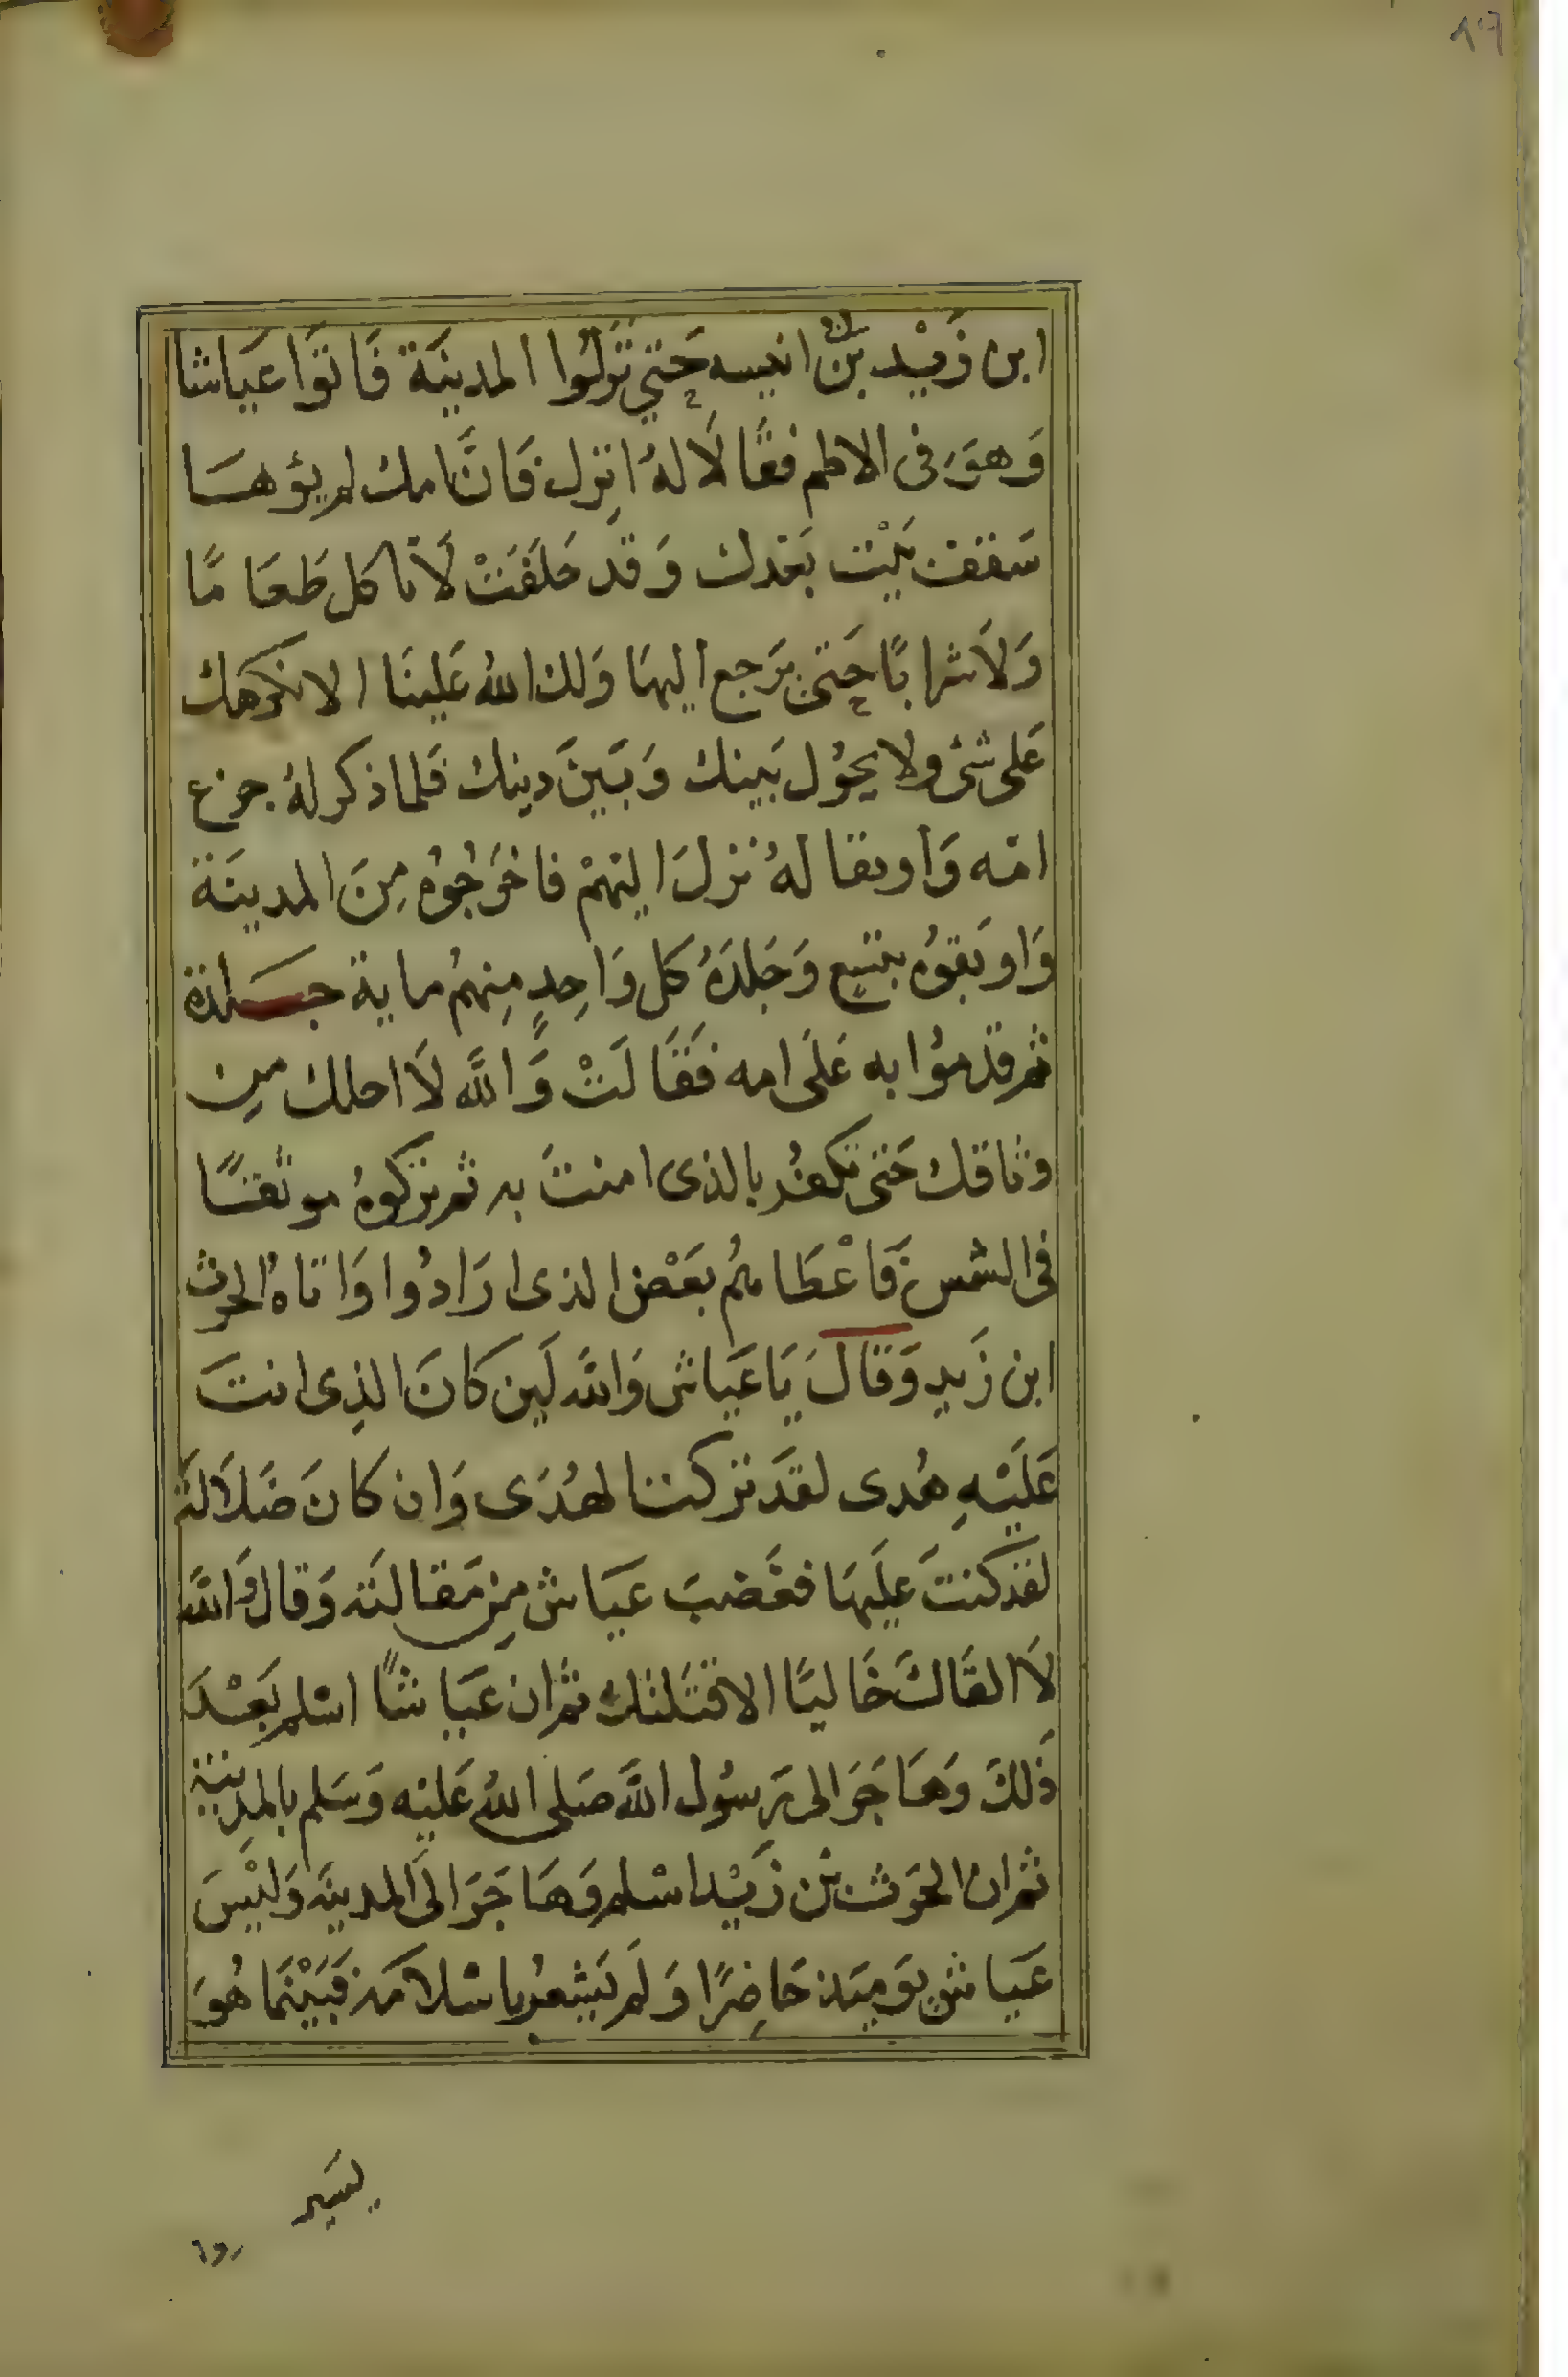 ابن زَيْد بن انيسه حَتى نَزَلُوا المدينَة فَاتوَا عَياشا
وَهوَ فى الاطم فقَالَا لهُ انزِل فَانَّ امك لم يؤهَا
سَقف بَيْت بَعدك وَقد حَلَفَتْ لَا تاكل طَعَامًا
وَلَا شرابًا حَتى تَرجع اليهَا وَلك اللهُ عَلينَا الا نكرهك
عَلى شئ ولا يحوُل بَينك وَبَينَ دِينك فلما ذكر لهُ جزع
امّه وَاوثقا لهُ نزلَ اليهمْ فاخرَجُوهُ مِنَ المدينَة
وَاوثَقوُه بنسِعٍ وَجَلدَهُ كل وَاحِدٍ مِنهُم ماية جَلدة
ثم قدموُا به عَلَى امه فَقَالَتْ وَاللَّه لَا احلك مِن
وثاقك حَتى تكفُر بالذى امنتَ به ثم تركوهُ موثقًا
فى الشمس فَاعْطَاهُم بَعْض الذى ارَادُوا وَاتاهُ الحرث
ابن زَيدٍ وَقالَ يَا عَياش وَاللَّه لَين كَانَ الذِى انتَ
عَلَيْهِ هُدى لقدَ تركت الهُدَى وَان كانَ ضَلَالَة
لقد كنتَ عَليهَا فغَضبَ عَيَاش مِن مَقالَته وَقال وَاللَّه
لَا القَاكَ خَاليًا الا قتَلتك ثم ان عَيَاشًا اسْلم بَعْدَ
ذَلكَ وَهَاجَرَ الى رَسُول اللَّه صَلى اللهُ عَليْه وَسَلم بالمدِينَة
ثم ان الحَرث بن زَيْد اسْلم وَهَاجَرَ الَى المدينَه وَليْسَ
عَياش يَوميَذ حَاضِرًا وَلَم يَشعُر باسْلَامَه فبَيْنَمَا هُوَ
يسَير